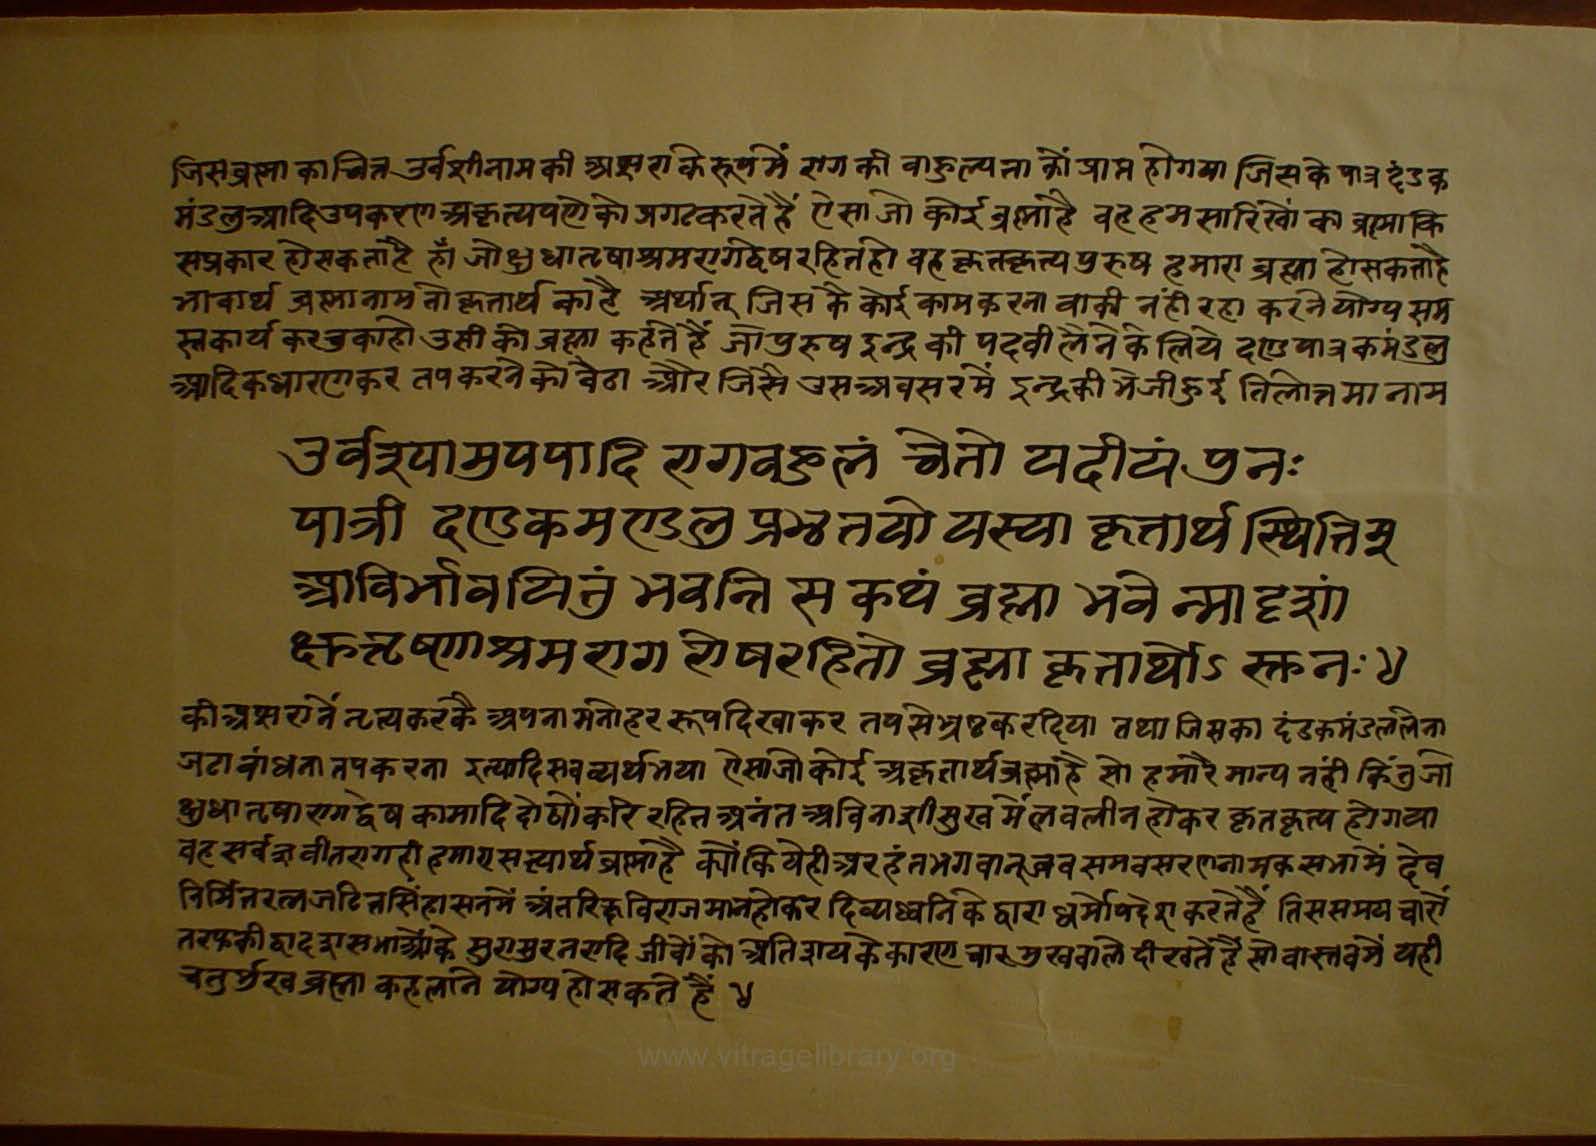 जिस ब्रह्मा का चित्त उर्वशी नाम की अप्सरा के रूप में राग की वाहुल्यता कों प्राप्त हो गया जिस के पात्र दंड क
मंडलु आदि उपकरण अकृत्यपणे को प्रगट करते हैं ऐसा जो कोई ब्रह्मा है वह हम सारिखों का ब्रह्मा कि
स प्रकार हो सकता है हाँ जो क्षुधा तृषा श्रम राग द्वेष रहित हो वह कृतकृत्य पुरुष हमारा ब्रह्मा हो सकता है
भावार्थ ब्रह्मा नाम तो कृतार्थ का है अर्थात् जिस के कोई काम करना वाकी नंही रहा करने योग्य सम
स्त कार्य कर चुका हो उसी को ब्रह्मा कहते हैं जो पुरुष इन्द्र की पदवी लेने के लिये दण्ड पात्र कमंडलु
आदिक धारण कर तप करने को वैठा और जिसे उस अवसर में इन्द्र की भेजी हुई तिलोत्तमा नाम
उर्वश्यामुपपादि रागवहुलं चेतो यदीयं पुनः
पात्री दण्डकमण्डलु प्रभृतयो यस्या कृतार्थ स्थितिम्
आविर्भावयितुं भवन्ति स कथं ब्रह्मा भवेन्मादृशां
क्षुत्तृष्णाश्रम राग रोष रहितो ब्रह्मा कृतार्थोऽ स्तु नः ४
की अप्सरा ने नृत्य करके अपना मनोहर रूप दिखा कर तप से भ्रष्ट कर दिया तथा जिस का दंड कमंडल लेना
जटा बांधना तप करना इत्यादि सव व्यर्थ भया ऐसा जो कोई अकृतार्थ ब्रह्मा है सो हमारै मान्य नंही किंतु जो
क्षुधा तृषा राग द्वेष कामादि दोषों करि रहित अनंत अविनाशी सुख में लवलीन होकर कृतकृत्य हो गया
वह सर्वज्ञ वीतराग ही हमारा सत्यार्थ ब्रह्मा है क्यों कि येही अरहंत भगवान् जव समवसरण नामक सभा में देव
निर्मित रत्न जटित सिंहासन में अंतरिक्ष विराजमान होकर दिव्यध्वनि के द्वारा धर्मोपदेश करते हैं तिस समय चारों
तरफ की द्वादश सभाओं के सुरासुर नरादि जीवों को अतिशय के कारण चार मुख वाले दीखते हैं सो वास्तव में यही
चतुर्मुख ब्रह्मा कहलाने योग्य हो सकते हैं ४
www.vitragelibrary.org